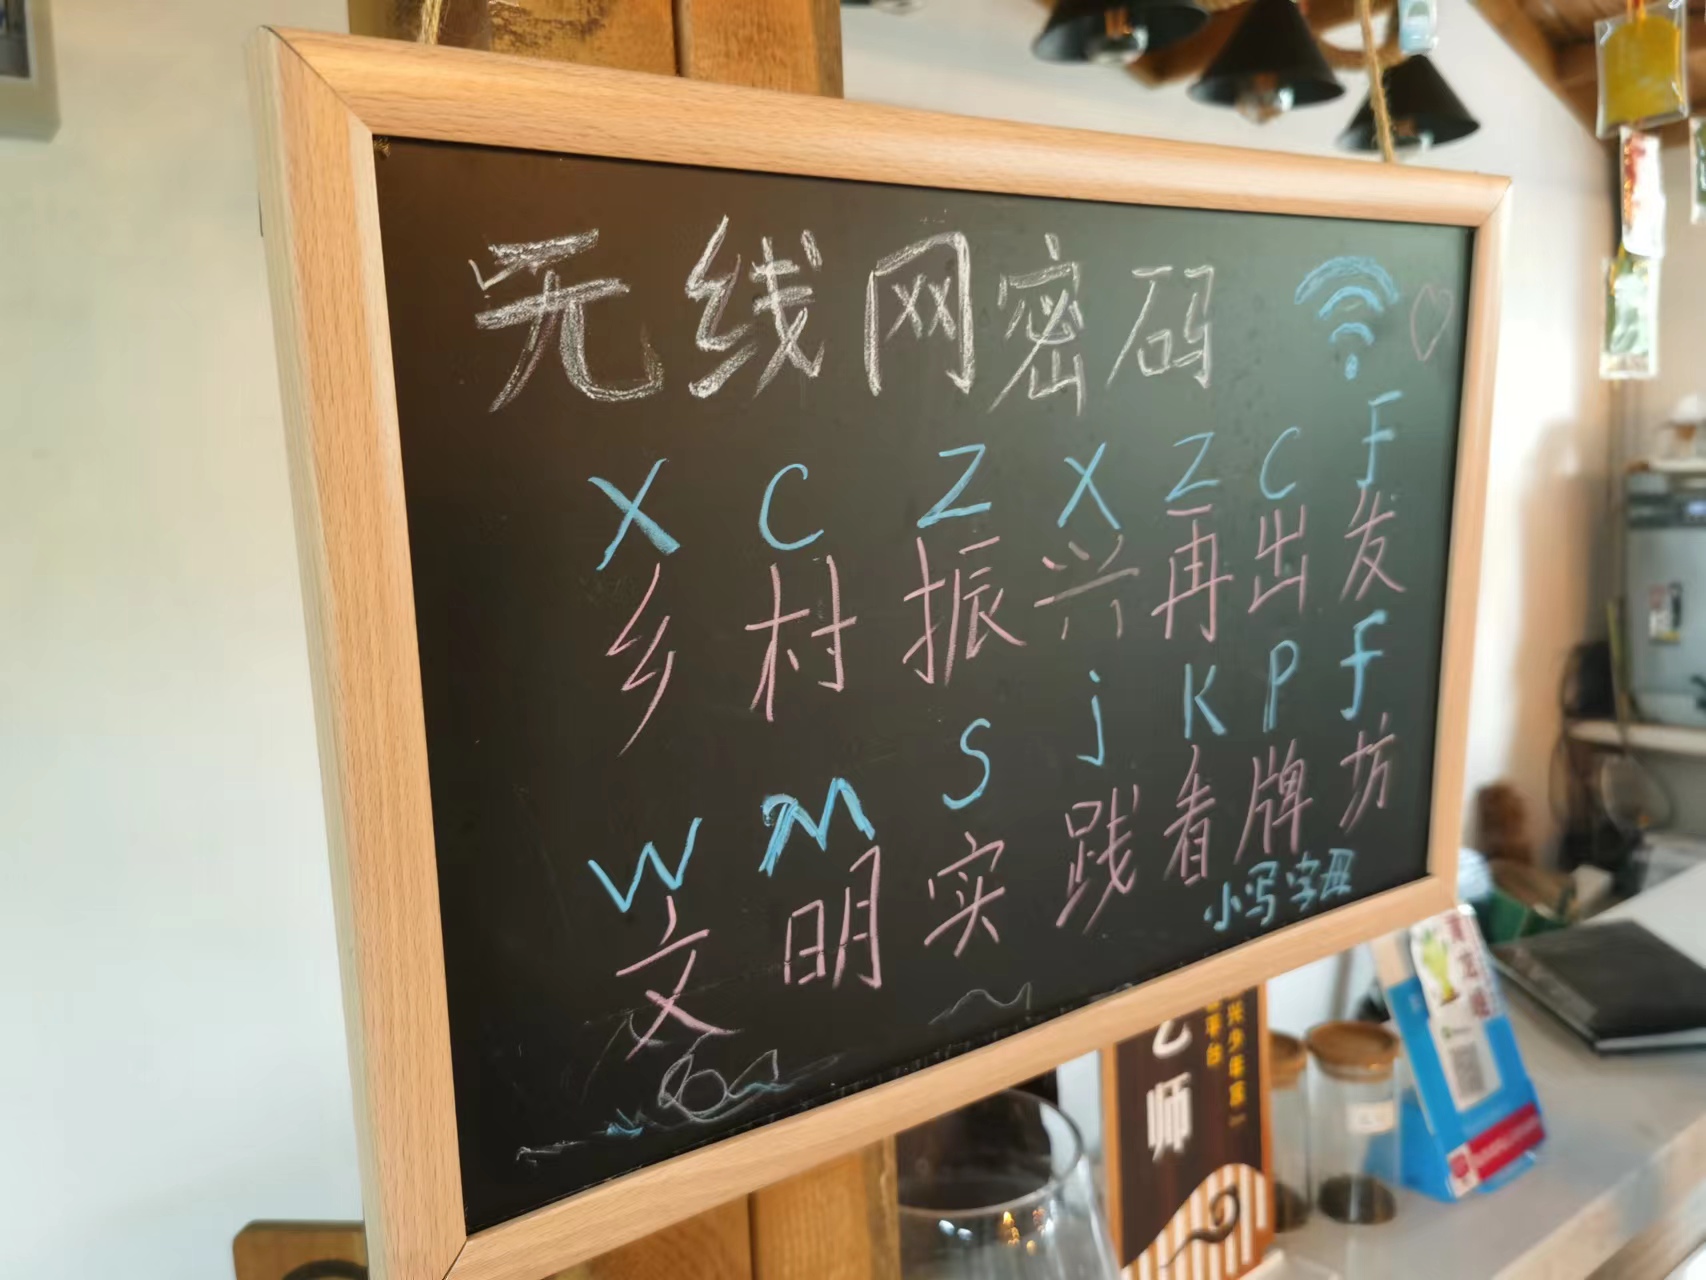 无线网密码
X C Z X Z C F
乡村振兴再出发
W M S j K P F
文明实践看牌坊
小写字母
师
兴少年宫
平台